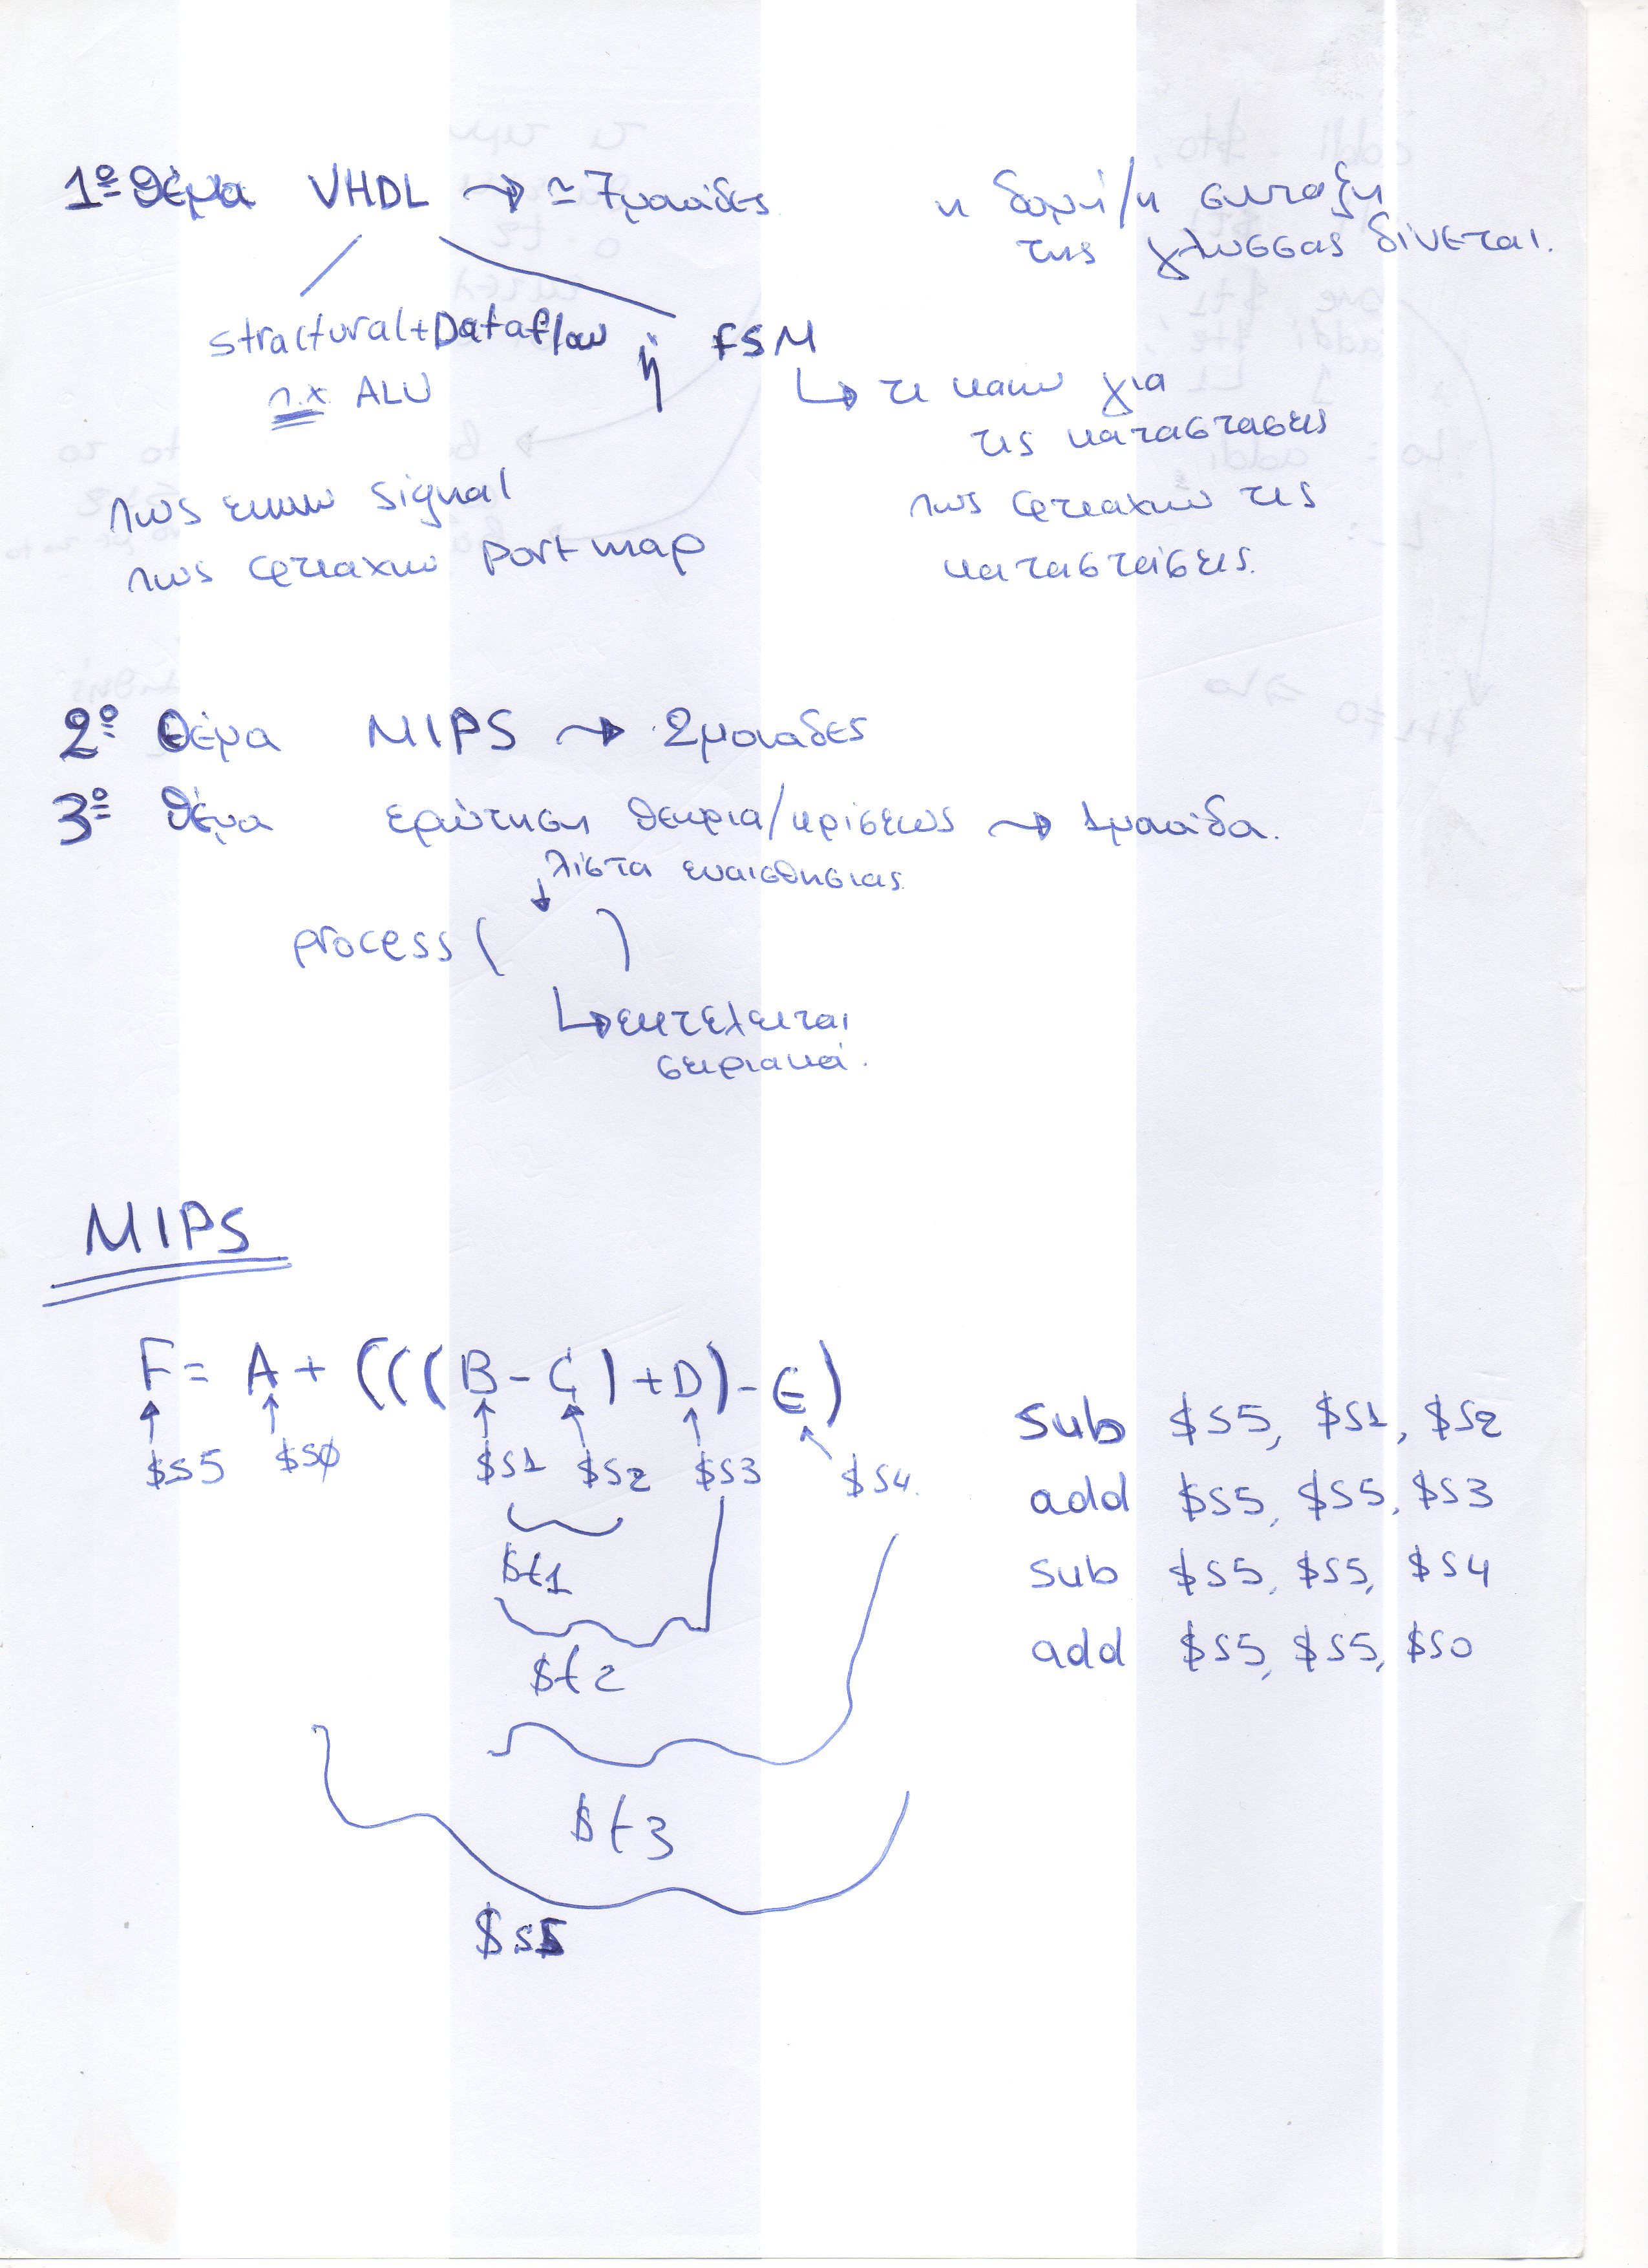 1º θέμα VHDL → ≃ 7μονάδες
η δομή/η σύνταξη
της γλώσσας δίνεται.
stractural+Dataflow ή FSM
π.χ. ALU
↳ τι κάνω για
τις καταστασεις
πως κανω signal
πως φτιαχνω τις
πως φτιαχνω port map
καταστάσεις.
2º θέμα MIPS → 2μοναδες
3º θέμα ερώτηση θεωρια/κρίσεως → 1μονάδα.
λίστα ευαισθησιας
process ( )
↳ εκτελειται
σειριακά.
MIPS
F = A + (((B - C) + D) - E)
$s5 $s0 $s1 $s2 $s3 $s4.
$t1
$t2
$t3
$s5
sub $s5, $s1, $s2
add $s5, $s5, $s3
sub $s5, $s5, $s4
add $s5, $s5, $s0